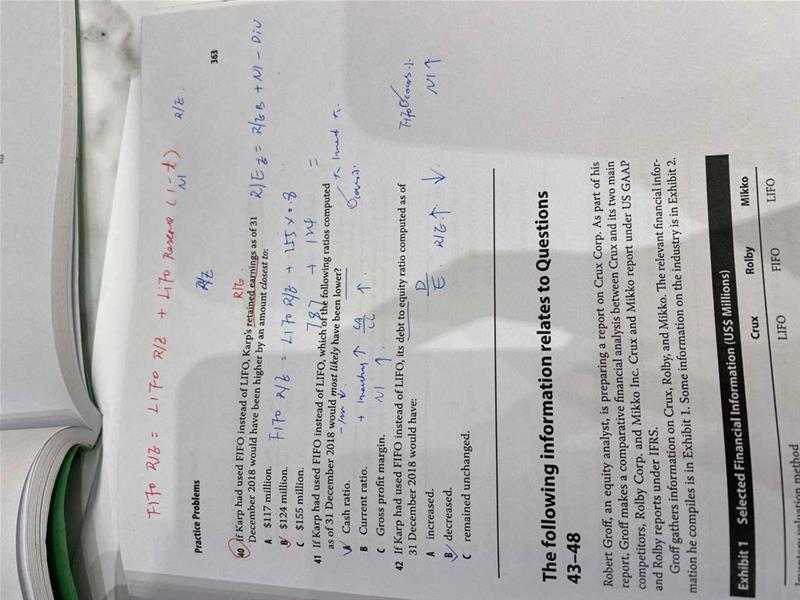 FIFO R/E = LIFO R/E + LIFO Reserve (1-t)
NI
R/E.
R/E
Practice Problems
363
R/E.
40 If Karp had used FIFO instead of LIFO, Karp's retained earnings as of 31
December 2018 would have been higher by an amount closest to:
R/E E = R/E B + NI - Div
A $117 million.
B $124 million.
FIFO R/E = LIFO R/E + 155 x 0.8
C $155 million.
787 + 124 =
41 If Karp had used FIFO instead of LIFO, which of the following ratios computed
as of 31 December 2018 would most likely have been lower?
A Cash ratio.
B Current ratio.
+ Inventory ↑ CA/CL ↑.
C Gross profit margin.
NI ↑.
42 If Karp had used FIFO instead of LIFO, its debt to equity ratio computed as of
31 December 2018 would have:
NI ↑
A increased.
D/E R/E ↑ ↓
B decreased.
C remained unchanged.
The following information relates to Questions
43–48
Robert Groff, an equity analyst, is preparing a report on Crux Corp. As part of his
report, Groff makes a comparative financial analysis between Crux and its two main
competitors, Rolby Corp. and Mikko Inc. Crux and Mikko report under US GAAP
and Rolby reports under IFRS.
Groff gathers information on Crux, Rolby, and Mikko. The relevant financial infor-
mation he compiles is in Exhibit 1. Some information on the industry is in Exhibit 2.
Exhibit 1 Selected Financial Information (US$ Millions)
Crux Rolby Mikko
LIFO FIFO LIFO